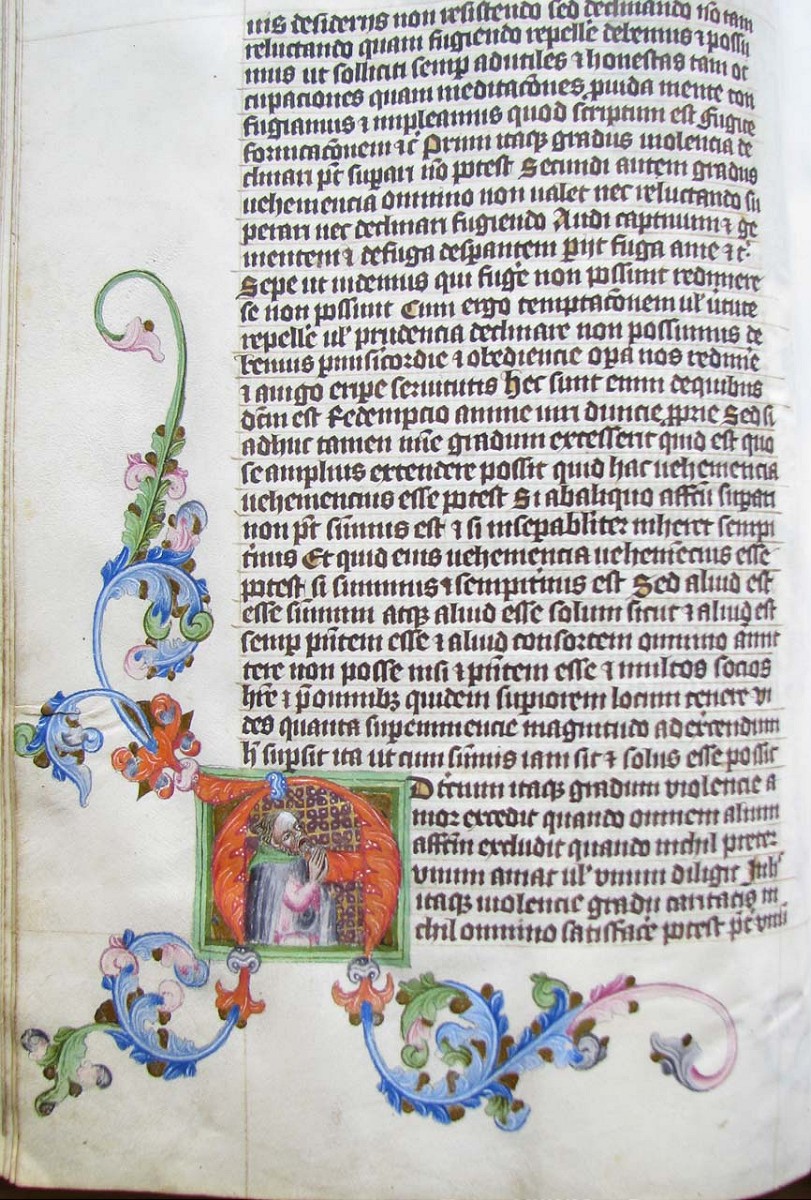 uis desiderijs non resistendo sed declinando no tam
reluctando quam fugiendo repelle debemus & possu
mus ut solliciti semp ad utiles & honestas tam oc
cupaciones quam meditacones puida mente con
fugiamus & impleamus quod scriptum est Fugite
fornicaconem &c Primi itaq gradus violencia de
clinari pt supari no potest Secundi autem gradus
vehemencia omnino non valet nec reluctando su
perari nec declinari fugiendo Audi captiuum & ge
mentem & de fuga despantem Piit fuga a me & c
Sepe ut videmus qui fuge non possunt redimere
se non possunt Cum ergo temptaconem ul utute
repelle ul prudencia declinare non possumus de
bemus p misicordie & obediencie opa nos redime
& a iugo eripe seruitutis hec sunt enim de quibus
dcm est Redempcio anime uiri diuicie pprie Sed si
adhuc tamen
gradum excesserit quid est quo
se amplius extendere possit quid hac vehemencia
vehemencius esse potest Si ab aliquo affcu supari
non pt summus est & si insepabliter inheret sempi
tnus Et quid eius vehemencia vehemecius esse
potest si summus & sempitnus est Sed aliud est
esse summum atq aliud esse solum sicut & aliud est
semp pntem esse & aliud consortem omnino amit
tere non posse nisi & pntem esse & multos socios
hre & p omnibz quidem supiorem locum tenere vi
des quanta supeminencie magnitudo ad excendum
h supsit ita ut cum summus iam sit & solus esse possit
Dercium itaq gradum violencie a
mor excedit quando omnem alium
affcm excludit quando nichil preter
vnum amat ul vnum diligit In h
itaq violencie gradu caritatis ni
chil omnino satisface potest pe vnu